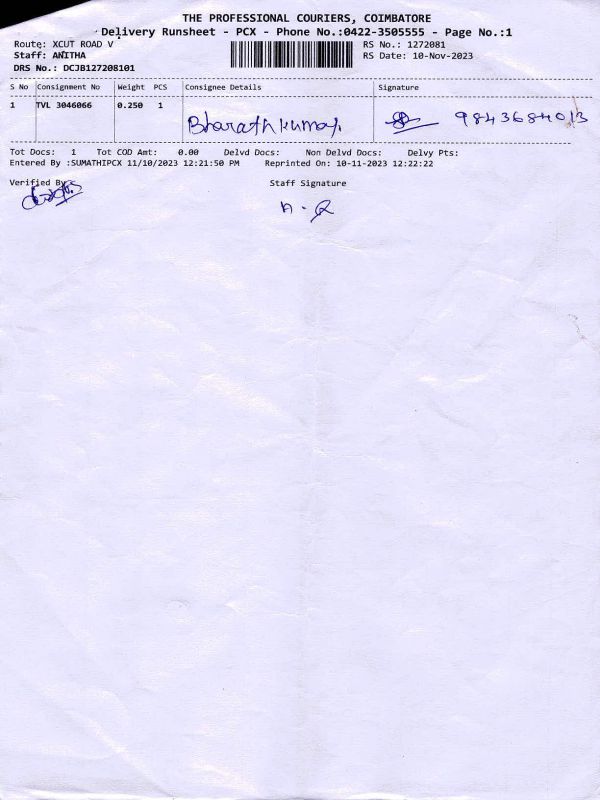 THE PROFESSIONAL COURIERS, COIMBATORE
Delivery Runsheet - PCX - Phone No.:0422-3505555 - Page No.:1
Route: XCUT ROAD V RS No.: 1272081
Staff: ANITHA RS Date: 10-Nov-2023
DRS No.: DCJB127208101
S No Consignment No Weight PCS Consignee Details Signature
1 TVL 3046066 0.250 1
Bharathkumar. 9843684013
Tot Docs: 1 Tot COD Amt: 0.00 Delvd Docs: Non Delvd Docs: Delvy Pts:
Entered By :SUMATHIPCX 11/10/2023 12:21:50 PM Reprinted On: 10-11-2023 12:22:22
Verified By Staff Signature